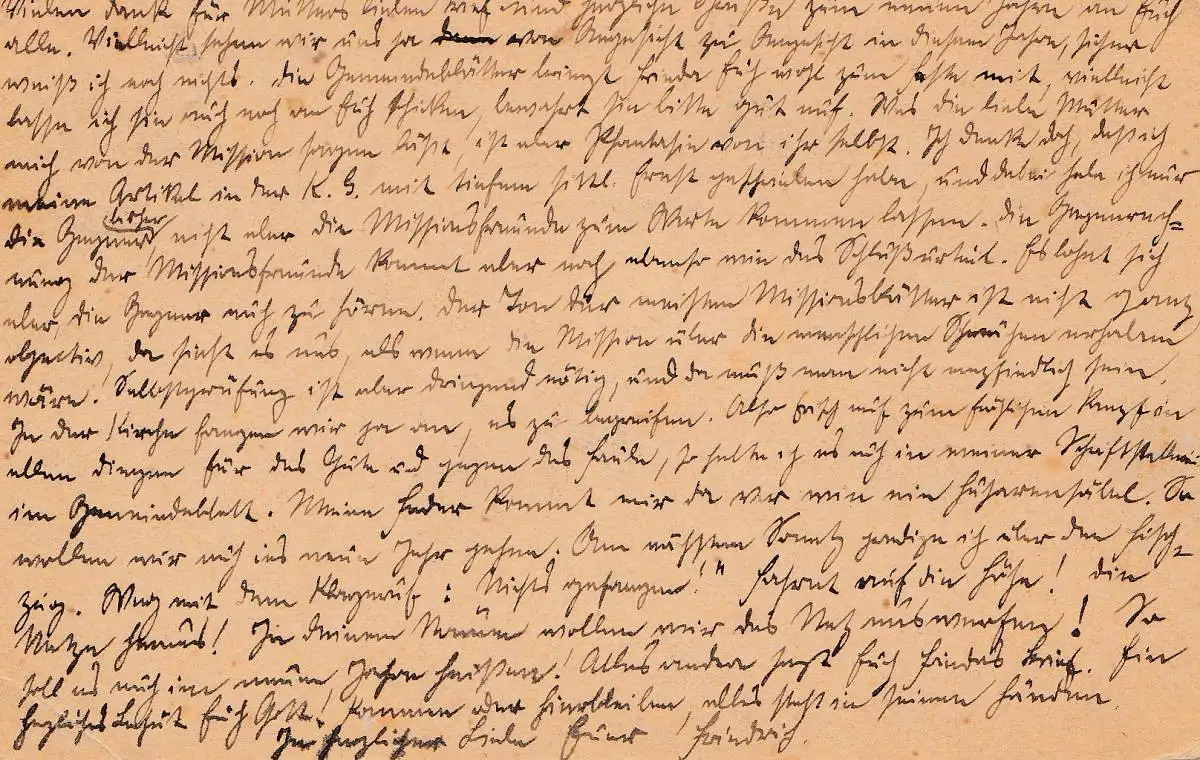 Vielen Dank für Mutters lieben Brief und herzliche Grüße zum neuen Jahre an Euch
alle. Vielleicht sehen wir uns ja von Angesicht zu Angesicht in diesem Jahre, sicher
weiß ich noch nichts. Die Gemeindeblätter bringt Frieda Euch wohl zum Feste mit, vielleicht
lasse ich sie auch noch an Euch schicken, bewahrt sie bitte gut auf. Was die liebe Mutter
mich von der Mission sagen läßt, ist aber Phantasie von ihr selbst. Ich denke doch, daß ich
meine Artikel in der K. G. mit tiefem sittl. Ernst geschrieben habe, und dabei habe ich nur
die Gegner bisher, nicht aber die Missionsfreunde zum Worte kommen lassen. Die Gegenrech=
nung der Missionsfreunde kommt aber noch, ebenso wie das Schlußurteil. Es lohnt sich
aber, die Gegner auch zu hören. Der Ton der meisten Missionsblätter ist nicht ganz
objectiv, da sieht es aus, als wenn die Mission über die menschlichen Schwächen erhaben
wäre. Selbstprüfung ist aber dringend nötig, und da muß man nicht empfindlich sein.
In der Kirche fangen wir ja an, es zu begreifen. Also frisch auf zum fröhlichen Kampf in
allen Dingen für das Gute und gegen das Faule, so halte ich es auch in meiner
im Gemeindeblatt. Meine Feder kommt mir da vor wie ein Husarensäbel. So
wollen wir auch ins neue Jahr gehen. Am nächsten Sonntg predige ich über den Fisch=
zug. Weg mit dem Klageruf: Nichts gefangen!" Fahret auf die Höhe! Die
Netze heraus! In deinem Namen wollen wir das Netz auswerfen! So
soll es auch im neuen Jahre heißen! Alles andere sagt Euch Friedas Brief. Ein
herzliches Behüt Euch Gott! Kommen oder Hierbleiben, alles steht in seinen Händen.
In herzlicher Liebe Euer Friedrich.